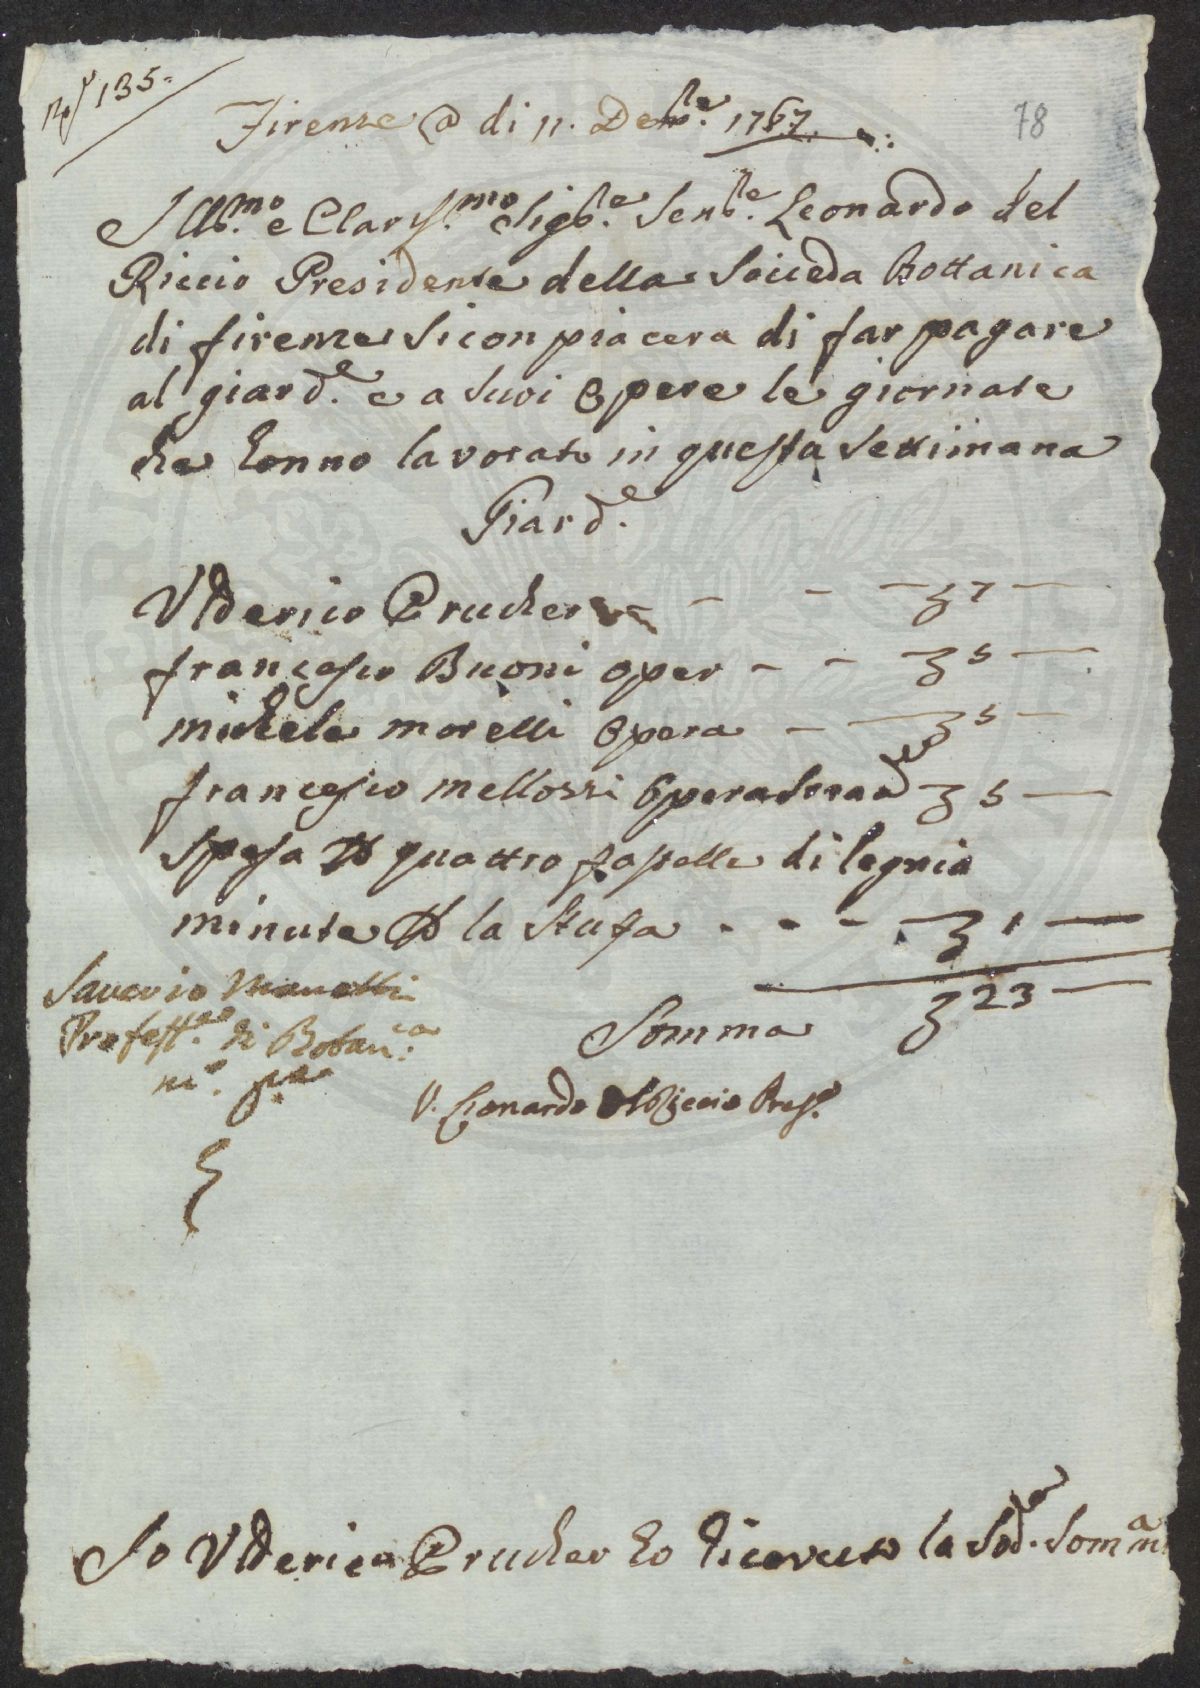 N.º 135.
78
Firenze @ di 11. Dembre. 1767.
Illmo. e Clarissmo. Sigre. Senre. Leonardo del
Riccio Presidente della Soicieda Bottanica
di firenze Si conpiacera di far pagare
al giarde. e a Suoi Opere le giornate
che honno lavorato in questa Settimana
Giarde.
Vlderico Prucher - - - 7 -
francesco Buoni oper - - - 5 -
michele morelli Opera - - 5 -
francesco mellossi Opera 5 -
Spesa quattro di legnia
minuta la Stufa - - - 1 -
23 -
Somma
Saverio Manetti
Professre. di Botanca.
mo. pa.
V. Lionardo del Riccio Prese.
Io Vlderico Prucher ho Riceuto la Sode. Somma